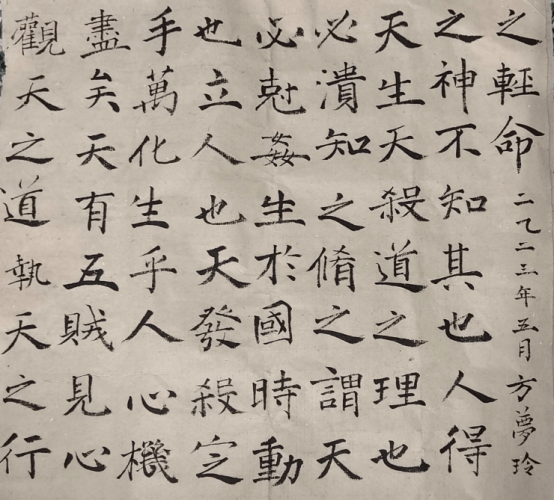 觀天之道執天之行
盡矣天有五賊見心
手萬化生乎人心機
也立人也天發殺㝎
必尅姦生於國時動
必潰知之脩之謂天
天生天殺道之理也
之神不知其也人得
之輕命 二乙二三年五月 方夢玲